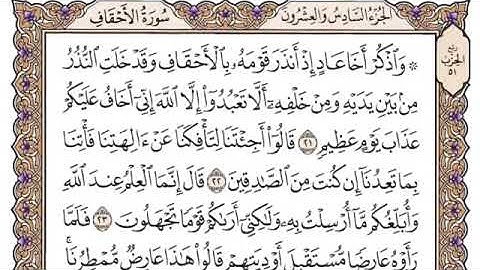 الجزء السادس والعشرون
سورة الأحقاف
ربع
الحزب
٥١
۞ وَٱذۡكُرۡ أَخَا عَادٍ إِذۡ أَنذَرَ قَوۡمَهُۥ بِٱلۡأَحۡقَافِ وَقَدۡ خَلَتِ ٱلنُّذُرُ
مِنۢ بَيۡنِ يَدَيۡهِ وَمِنۡ خَلۡفِهِۦٓ أَلَّا تَعۡبُدُوٓاْ إِلَّا ٱللَّهَ إِنِّيٓ أَخَافُ عَلَيۡكُمۡ
عَذَابَ يَوۡمٍ عَظِيمٖ ٢١ قَالُوٓاْ أَجِئۡتَنَا لِتَأۡفِكَنَا عَنۡ ءَالِهَتِنَا فَأۡتِنَا
بِمَا تَعِدُنَآ إِن كُنتَ مِنَ ٱلصَّٰدِقِينَ ٢٢ قَالَ إِنَّمَا ٱلۡعِلۡمُ عِندَ ٱللَّهِ
وَأُبَلِّغُكُم مَّآ أُرۡسِلۡتُ بِهِۦ وَلَٰكِنِّيٓ أَرَىٰكُمۡ قَوۡمٗا تَجۡهَلُونَ ٢٣ فَلَمَّا
رَأَوۡهُ عَارِضٗا مُّسۡتَقۡبِلَ أَوۡدِيَتِهِمۡ قَالُواْ هَٰذَا عَارِضٞ مُّمۡطِرُنَاۚ